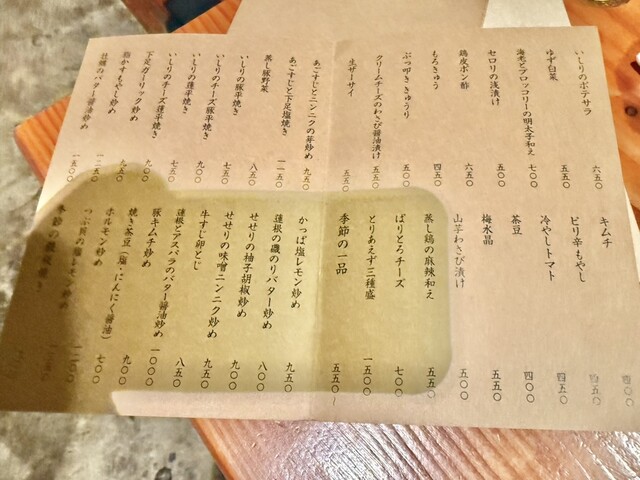 いしりのポテサラ 六五〇
ゆず白菜 五五〇
海老とブロッコリーの明太子和え 七〇〇
セロリの浅漬け 五五〇
鶏皮ポン酢 六五〇
もろきゅう 四五〇
ぶっ叩ききゅうり 五五〇
クリームチーズのわさび醤油漬け 五五〇
生ザーサイ 五五〇
キムチ 四〇〇
ピリ辛もやし 四五〇
冷やしトマト 四五〇
茶豆 四〇〇
梅水晶 五五〇
山芋わさび漬け 五〇〇
蒸し鶏の麻辣和え 五五〇
ぱりとろチーズ 七〇〇
とりあえず三種盛 一五〇〇
季節の一品 五五〇〜
あごすじとニンニクの芽炒め 九五〇
あごすじと下足塩焼き 一一五〇
蒸し豚野菜 八五〇
いしりの豚平焼き 七五〇
いしりのチーズ豚平焼き 九〇〇
いしりの蓮平焼き 七五〇
いしりのチーズ蓮平焼き 九〇〇
下足ガーリック炒め 九五〇
脂かすもやし炒め
牡蠣のバター醤油炒め 一五〇〇
かっぱ塩レモン炒め 九五〇
蓮根の磯のりバター炒め 八〇〇
せせりの柚子胡椒炒め 九五〇
せせりの味噌ニンニク炒め 九五〇
牛すじ卵とじ 八五〇
蓮根とアスパラのバター醤油炒め
豚キムチ炒め 一〇〇〇
焼き茶豆(塩・にんにく醤油) 七〇〇
ホルモン炒め
つぶ貝の塩もやし炒め
季節の